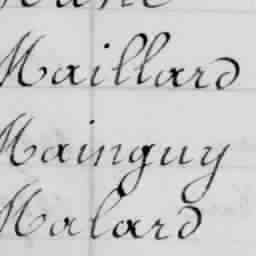 Maillard
Mainguy
Malard